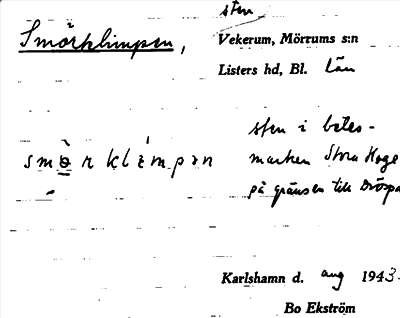 Smörklimpen, sten
Vekerum, Mörrums s:n
Listers hd, Bl. län
sten i betes-
smərklimpən marken Stora Hoge
på gränsen till
Karlshamn d. aug 1943.
Bo Ekström